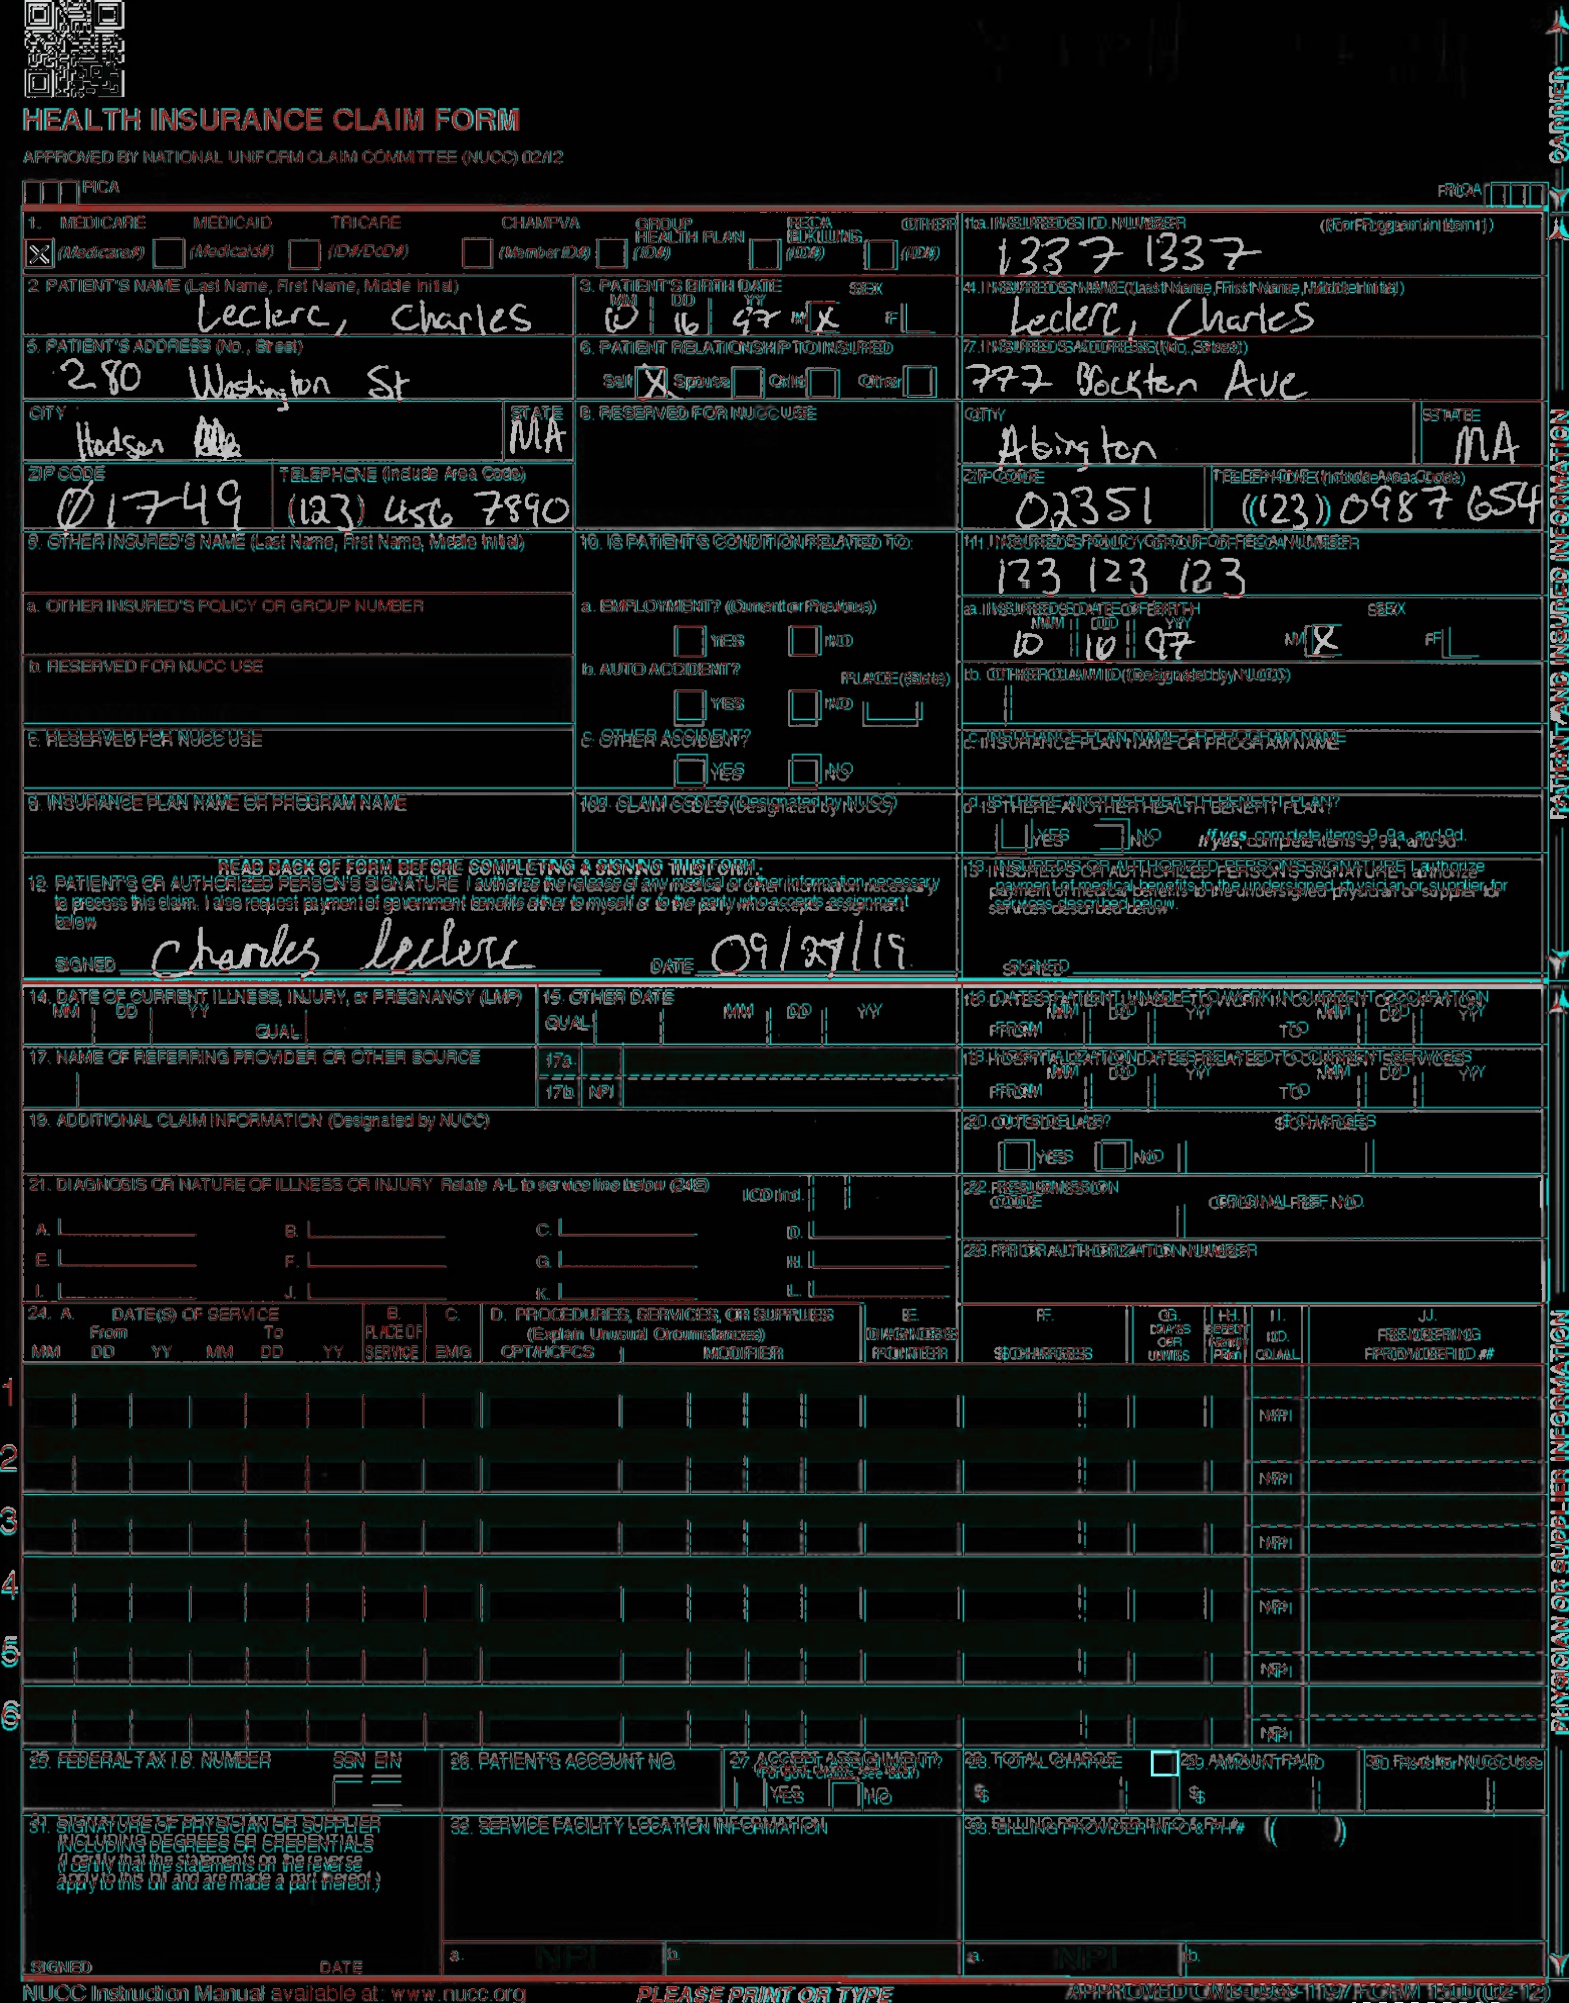 HEALTH INSURANCE CLAIM FORM
APPROVED BY NATIONAL UNIFORM CLAIM COMMITTEE (NUCC) 02/12
PICA
PICA
CARRIER
1. MEDICARE MEDICAID TRICARE CHAMPVA GROUP HEALTH PLAN FECA BLK LUNG OTHER
(Medicare#) (Medicaid#) (ID#/DoD#) (Member ID#) (ID#) (ID#) (ID#)
1a. INSURED'S I.D. NUMBER (For Program in Item 1)
1337 1337
2. PATIENT'S NAME (Last Name, First Name, Middle Initial)
Leclerc, Charles
3. PATIENT'S BIRTH DATE SEX
MM DD YY
10 16 97 M X F
4. INSURED'S NAME (Last Name, First Name, Middle Initial)
Leclerc, Charles
5. PATIENT'S ADDRESS (No., Street)
280 Washington St
6. PATIENT RELATIONSHIP TO INSURED
Self X Spouse Child Other
7. INSURED'S ADDRESS (No., Street)
777 Brockton Ave
CITY STATE
Hudson MA
8. RESERVED FOR NUCC USE
CITY STATE
Abington MA
ZIP CODE TELEPHONE (Include Area Code)
01749 (123) 456 7890
ZIP CODE TELEPHONE (Include Area Code)
02351 (123) 0987 654
9. OTHER INSURED'S NAME (Last Name, First Name, Middle Initial)
10. IS PATIENT'S CONDITION RELATED TO:
11. INSURED'S POLICY GROUP OR FECA NUMBER
123 123 123
a. OTHER INSURED'S POLICY OR GROUP NUMBER
a. EMPLOYMENT? (Current or Previous)
YES NO
a. INSURED'S DATE OF BIRTH SEX
MM DD YY
10 16 97 M X F
b. RESERVED FOR NUCC USE
b. AUTO ACCIDENT? PLACE (State)
YES NO
b. OTHER CLAIM ID (Designated by NUCC)
c. RESERVED FOR NUCC USE
c. OTHER ACCIDENT?
YES NO
c. INSURANCE PLAN NAME OR PROGRAM NAME
d. INSURANCE PLAN NAME OR PROGRAM NAME
10d. CLAIM CODES (Designated by NUCC)
d. IS THERE ANOTHER HEALTH BENEFIT PLAN?
YES NO If yes, complete items 9, 9a, and 9d.
READ BACK OF FORM BEFORE COMPLETING & SIGNING THIS FORM.
12. PATIENT'S OR AUTHORIZED PERSON'S SIGNATURE I authorize the release of any medical or other information necessary
to process this claim. I also request payment of government benefits either to myself or to the party who accepts assignment
below.
SIGNED Charles Leclerc DATE 09/27/19
13. INSURED'S OR AUTHORIZED PERSON'S SIGNATURE I authorize
payment of medical benefits to the undersigned physician or supplier for
services described below.
SIGNED
PATIENT AND INSURED INFORMATION
14. DATE OF CURRENT ILLNESS, INJURY, or PREGNANCY (LMP)
MM DD YY
QUAL.
15. OTHER DATE
QUAL. MM DD YY
16. DATES PATIENT UNABLE TO WORK IN CURRENT OCCUPATION
MM DD YY MM DD YY
FROM TO
17. NAME OF REFERRING PROVIDER OR OTHER SOURCE
17a.
17b. NPI
18. HOSPITALIZATION DATES RELATED TO CURRENT SERVICES
MM DD YY MM DD YY
FROM TO
19. ADDITIONAL CLAIM INFORMATION (Designated by NUCC)
20. OUTSIDE LAB? $ CHARGES
YES NO
21. DIAGNOSIS OR NATURE OF ILLNESS OR INJURY Relate A-L to service line below (24E) ICD Ind.
A. B. C. D.
E. F. G. H.
I. J. K. L.
22. RESUBMISSION
CODE ORIGINAL REF. NO.
23. PRIOR AUTHORIZATION NUMBER
24. A. DATE(S) OF SERVICE B. C. D. PROCEDURES, SERVICES, OR SUPPLIES E. F. G. H. I. J.
From To PLACE OF (Explain Unusual Circumstances) DIAGNOSIS DAYS OR UNITS EPSDT Family Plan ID. RENDERING
MM DD YY MM DD YY SERVICE EMG CPT/HCPCS MODIFIER POINTER $ CHARGES QUAL. PROVIDER ID. #
1
NPI
2
NPI
3
NPI
4
NPI
5
NPI
6
NPI
25. FEDERAL TAX I.D. NUMBER SSN EIN
26. PATIENT'S ACCOUNT NO.
27. ACCEPT ASSIGNMENT?
(For govt. claims, see back)
YES NO
28. TOTAL CHARGE
$
29. AMOUNT PAID
$
30. Rsvd for NUCC Use
31. SIGNATURE OF PHYSICIAN OR SUPPLIER
INCLUDING DEGREES OR CREDENTIALS
(I certify that the statements on the reverse
apply to this bill and are made a part thereof.)
SIGNED DATE
32. SERVICE FACILITY LOCATION INFORMATION
a. NPI b.
33. BILLING PROVIDER INFO & PH # ( )
a. NPI b.
PHYSICIAN OR SUPPLIER INFORMATION
NUCC Instruction Manual available at: www.nucc.org
PLEASE PRINT OR TYPE
APPROVED OMB-0938-1197 FORM 1500 (02-12)